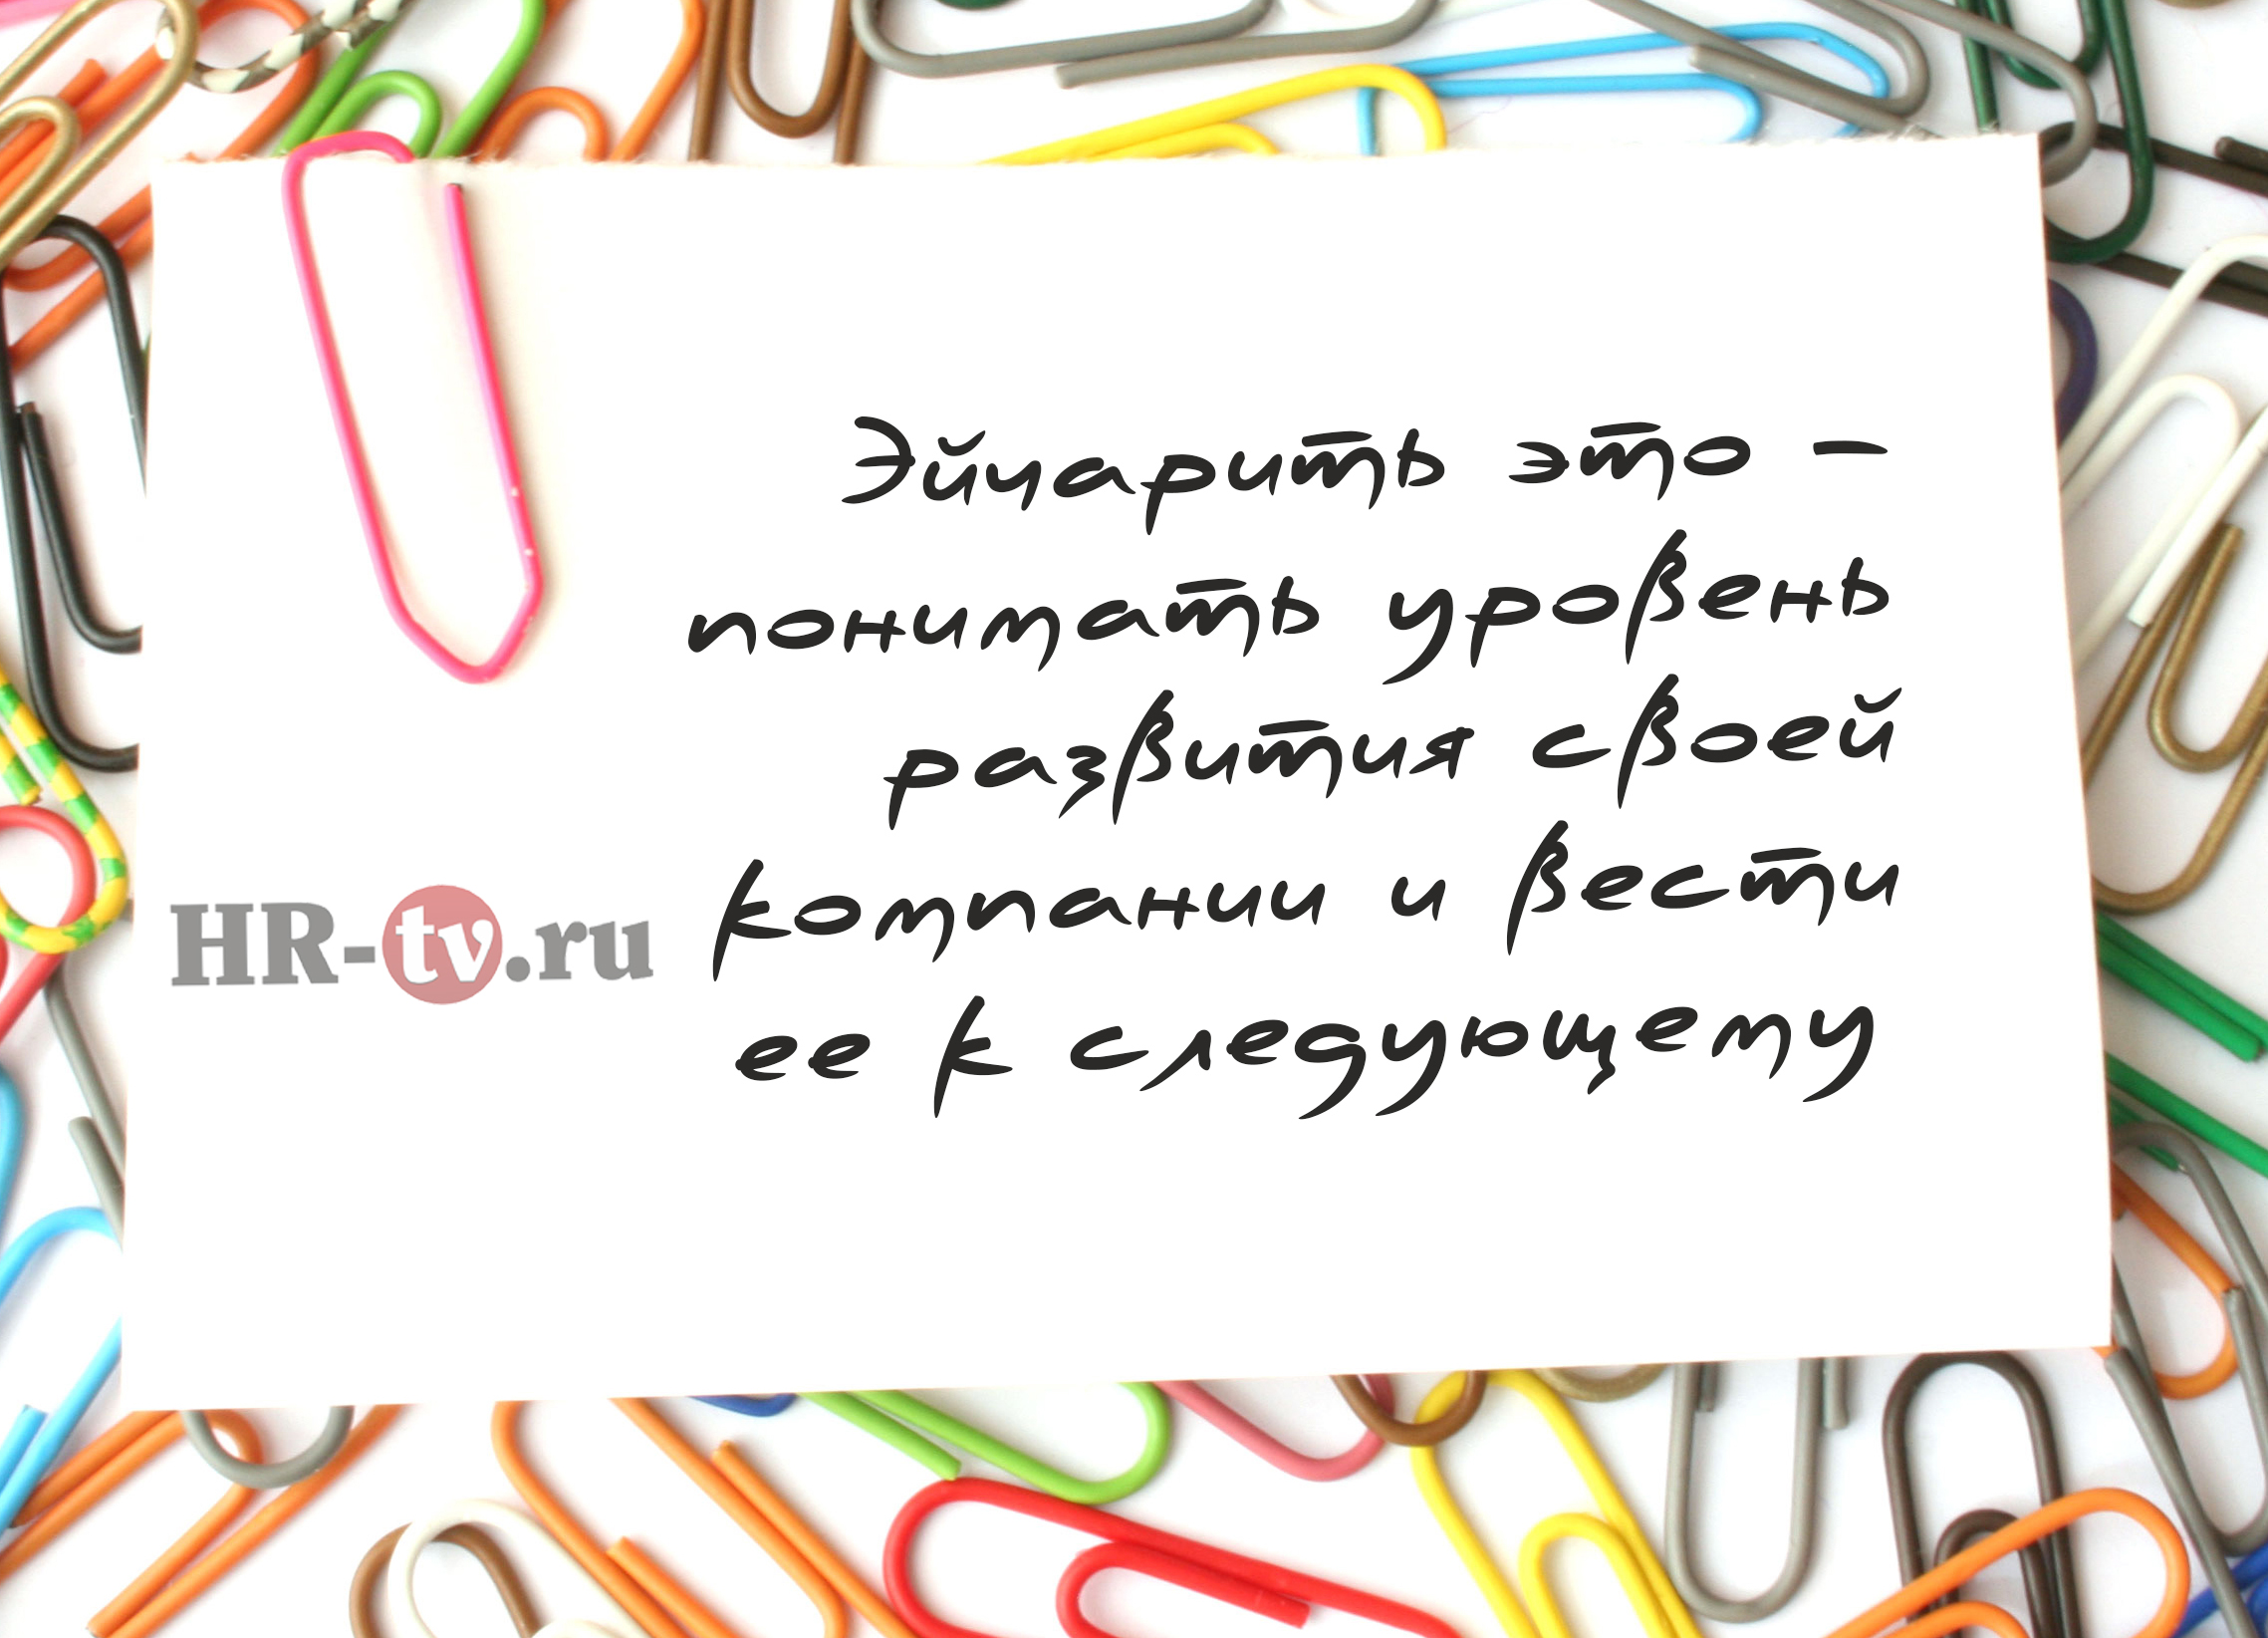 Эйчарить это –
понимать уровень
развития своей
компании и вести
ее к следующему
HR-tv.ru